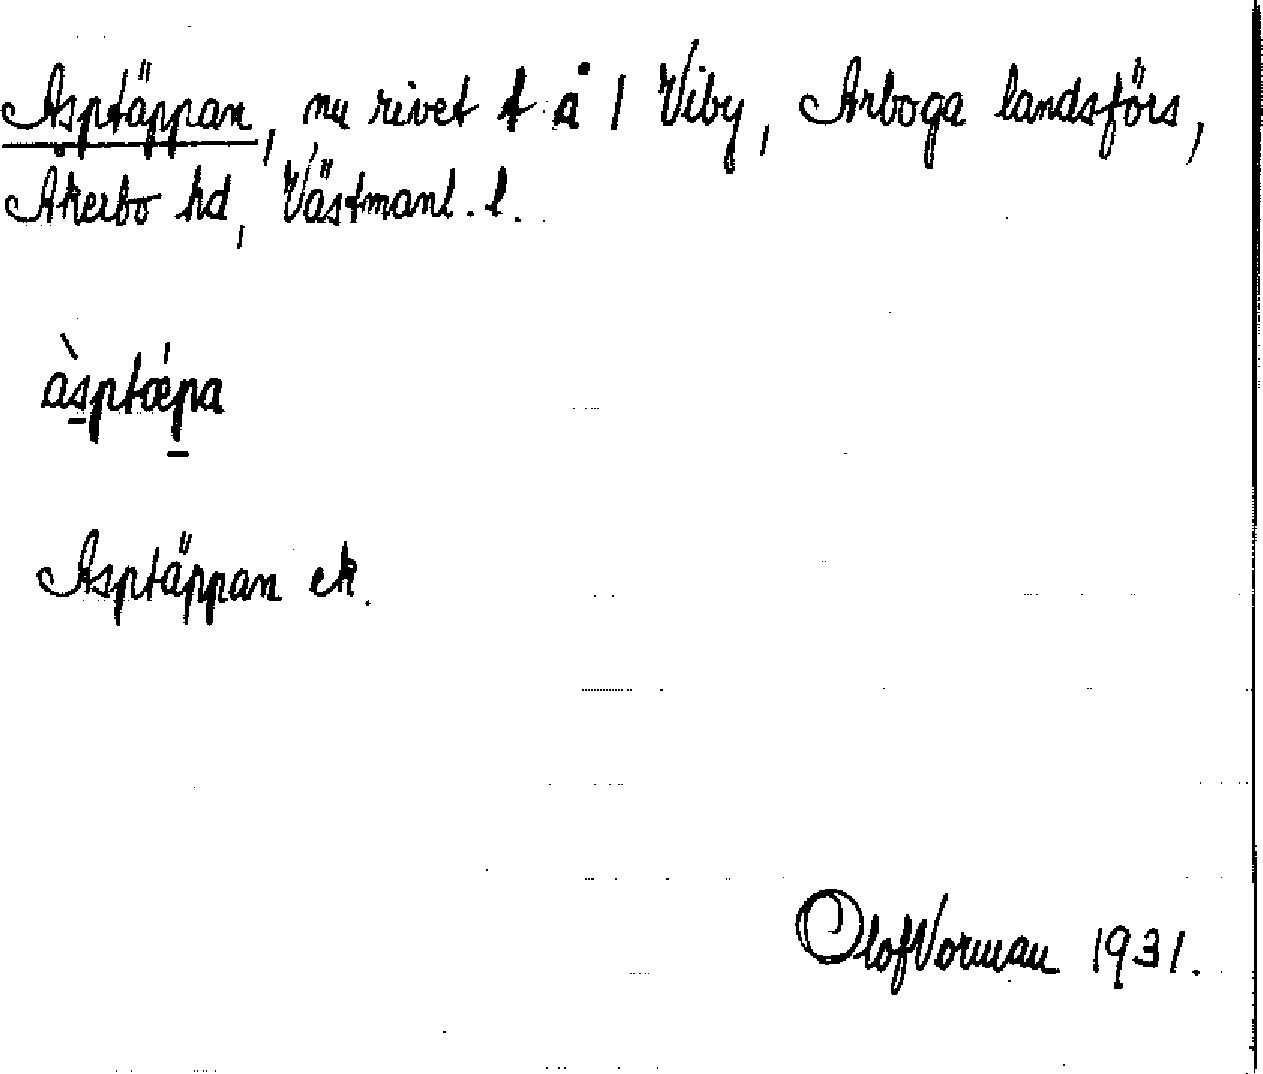 Asptäppan, nu rivet t å 1 Viby, Arboga landsförs,
Åkerbo hd, Västmanl. l.
àsptǽpa
Asptäppan ek.
Olof Vorman 1931.